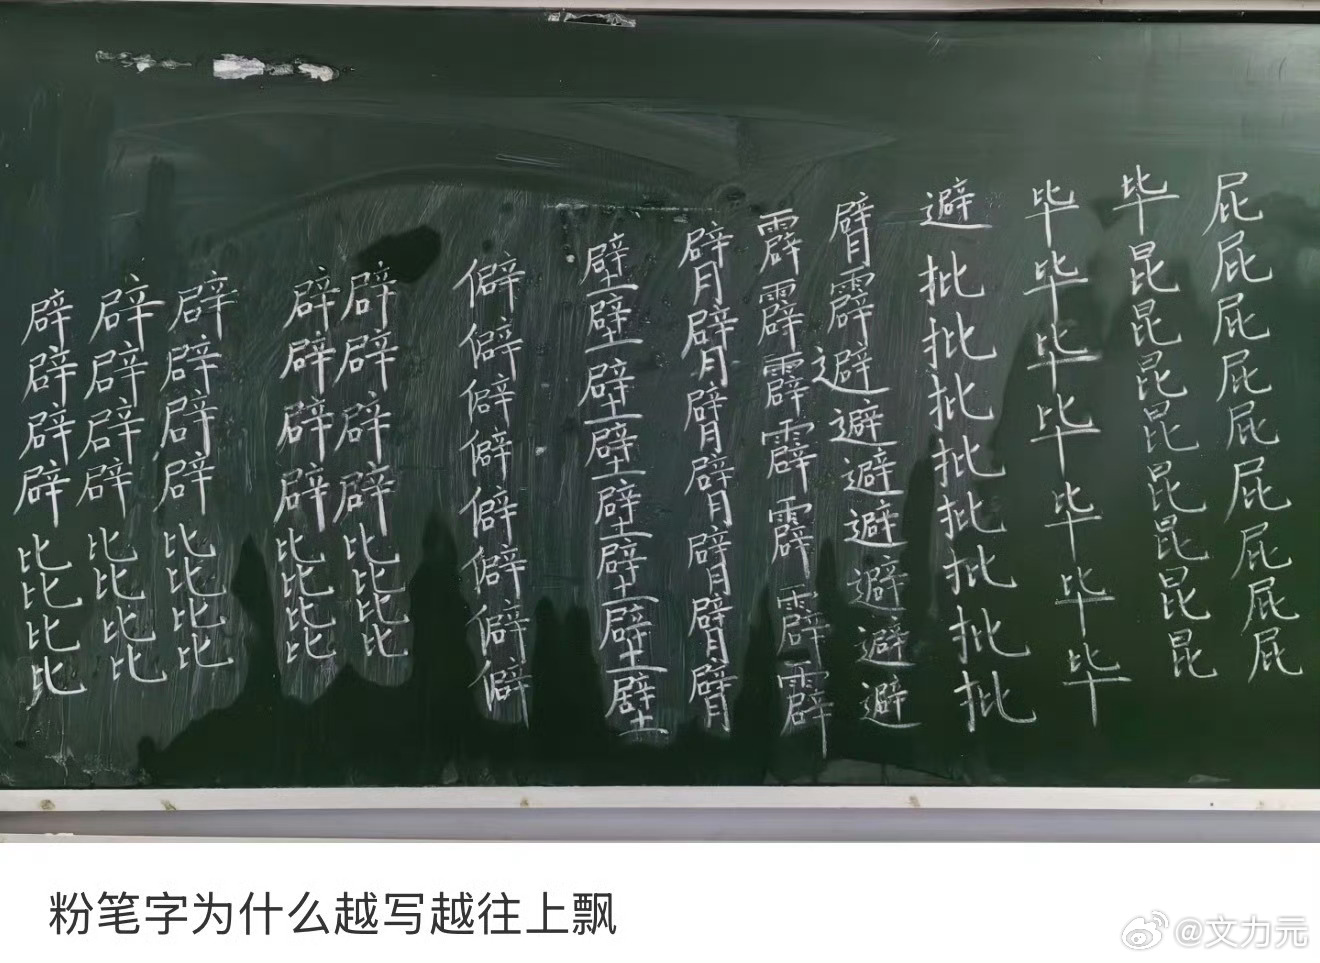 辟辟辟辟比比比比
辟辟辟辟比比比比
辟辟辟辟比比比比
辟辟辟辟比比比比
辟辟辟辟比比比比
僻僻僻僻僻僻僻僻
壁壁壁壁壁壁壁壁
臂臂臂臂臂臂臂
霹霹霹霹霹霹霹
臂霹避避避避避避避
避批批批批批批批批
毕毕毕毕毕毕毕
毕昆昆昆昆昆昆昆昆
屁屁屁屁屁屁屁屁屁
粉笔字为什么越写越往上飘
@文力元